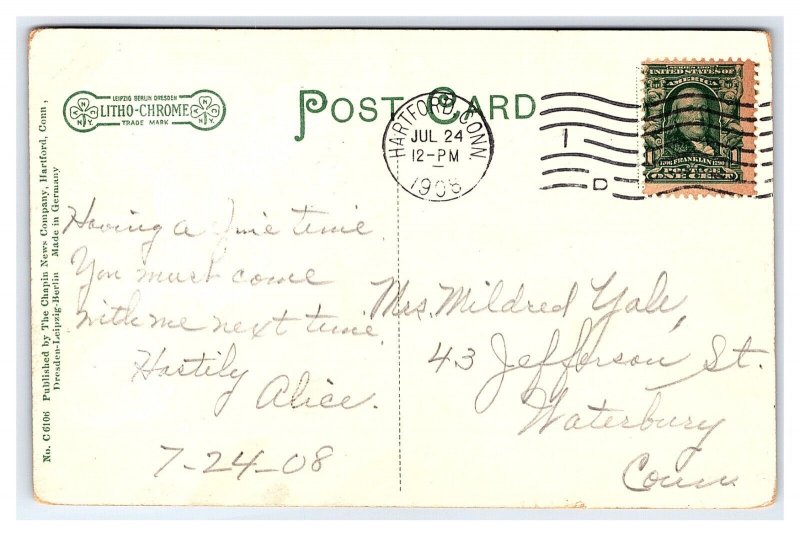 LEIPZIG BERLIN DRESDEN
LITHO-CHROME
TRADE MARK
POST CARD
HARTFORD, CONN.
JUL 24
12-PM
1908
1
D
SERIES 1902
UNITED STATES OF
AMERICA
FRANKLIN
POSTAGE
ONE CENT
No. C 6106 Published by The Chapin News Company, Hartford, Conn.,
Dresden-Leipzig-Berlin Made in Germany
Having a fine time.
You must come
with me next time.
Hastily
Alice.
7-24-08
Mrs. Mildred Yale,
43 Jefferson St.
Waterbury
Conn.